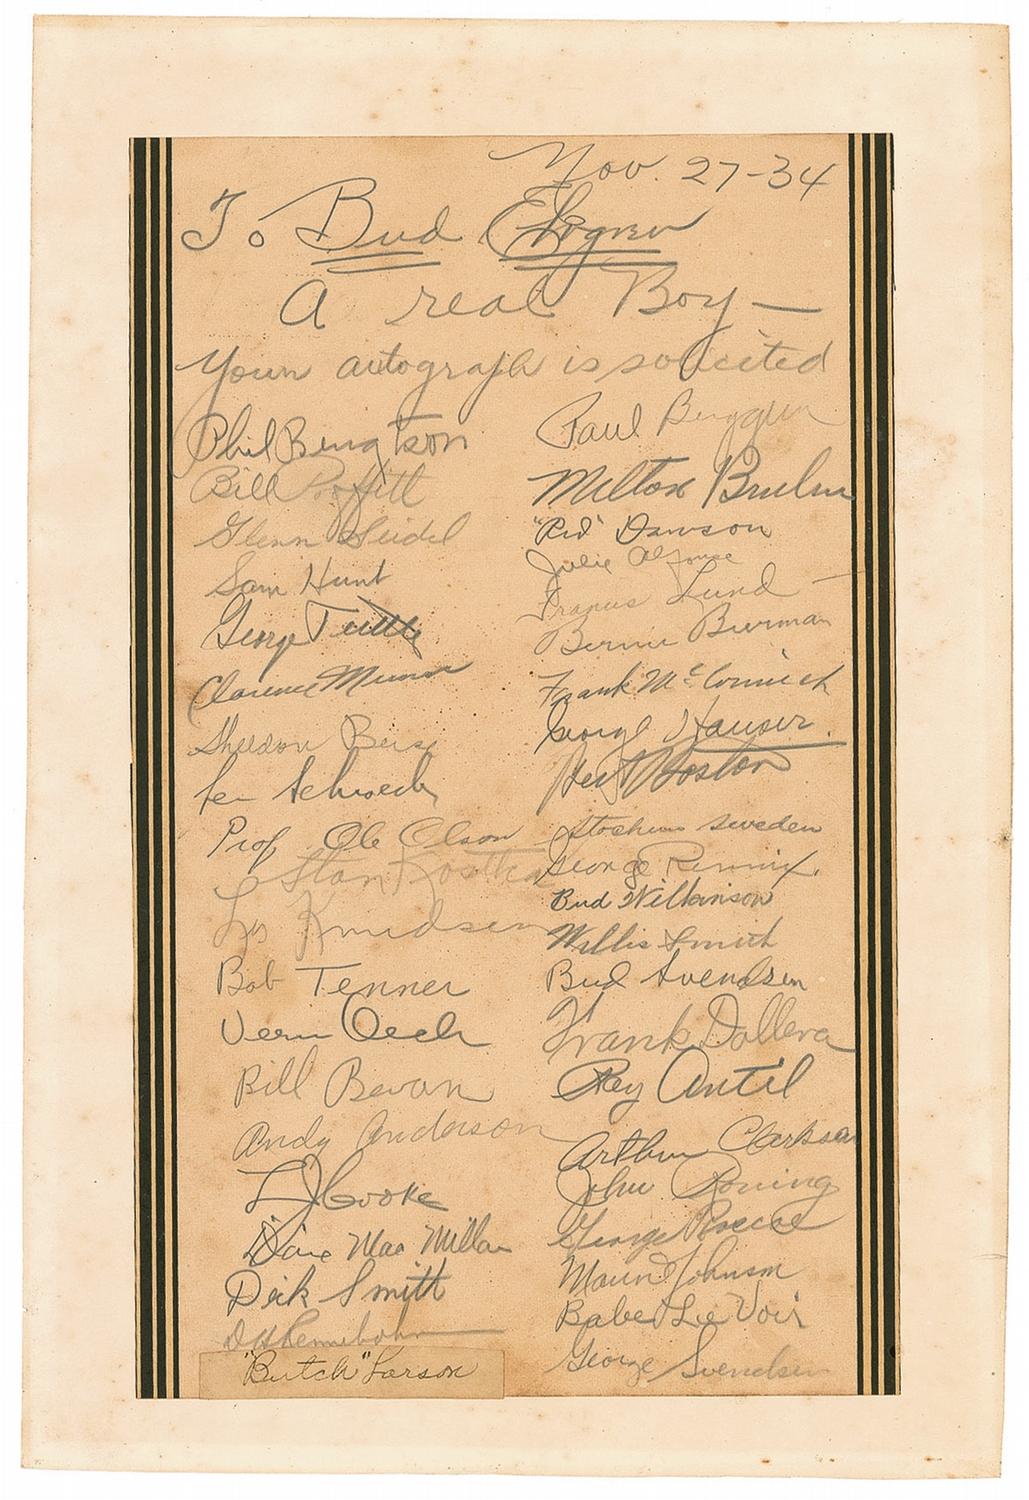 Nov. 27-34
To Bud Elgren
A real Boy—
Your autograph is solicited
Phil Bengtson
Bill Proffitt
Glenn Seidel
Sam Hunt
George Tuttle
Clarence Munn
Sheldon Beise
Len Schroeder
Prof Ole Olson
Stan Kostka
Les Knudsen
Bob Tenner
Vern Oech
Bill Bevan
Andy Anderson
LJ Cooke
Dave Mac Millan
Dick Smith
"Butch" Larson
Paul Berggren
Milton Bruhn
"Red" Dawson
Julie Alfonse
Francis Lund
Bernie Bierman
Frank McCormick
George Hauser.
Sweden
George Rennix.
Bud Wilkinson
Willis Smith
Bud Svendsen
Frank Dallera
Ray Antil
Arthur Clarkson
John Roning
George Roscoe
Johnson
Babe Le Voir
George Svendsen